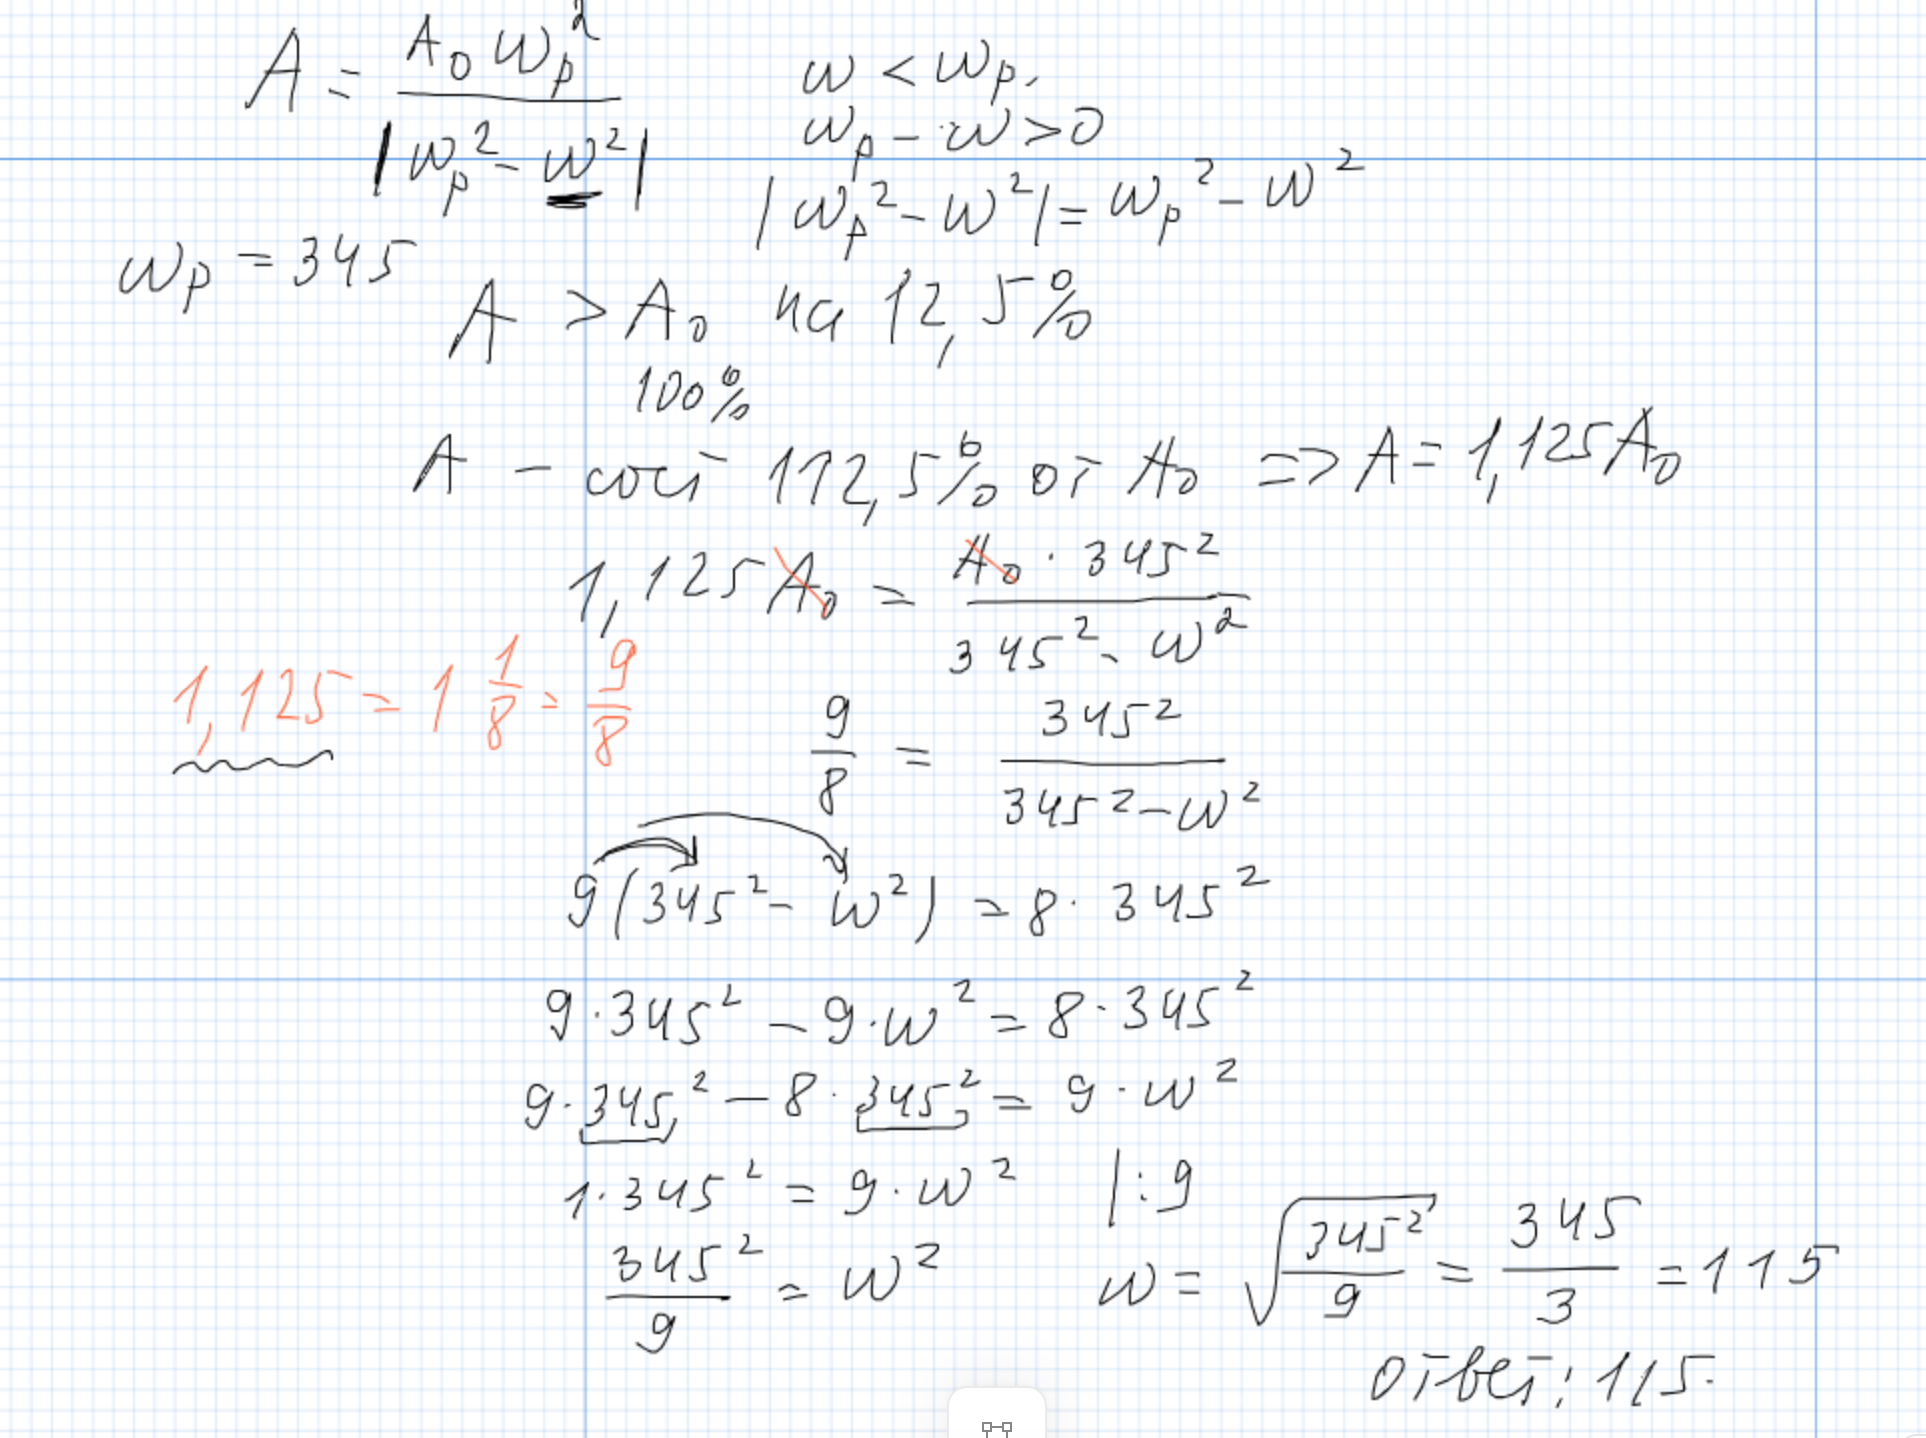 A = A₀ωₚ² / |ωₚ² - ω²|
ω < ωₚ,
ωₚ - ω > 0
|ωₚ² - ω²| = ωₚ² - ω²
ωₚ = 345
A > A₀ на 12,5%
100%
A - сост 112,5% от A₀ => A = 1,125A₀
1,125A₀ = A₀ · 345² / 345² - ω²
1,125 = 1 1/8 = 9/8
9/8 = 345² / 345² - ω²
9(345² - ω²) = 8 · 345²
9 · 345² - 9 · ω² = 8 · 345²
9 · 345² - 8 · 345² = 9 · ω²
1 · 345² = 9 · ω² |:9
345²/9 = ω²
ω = √(345²/9) = 345/3 = 115
Ответ: 115.